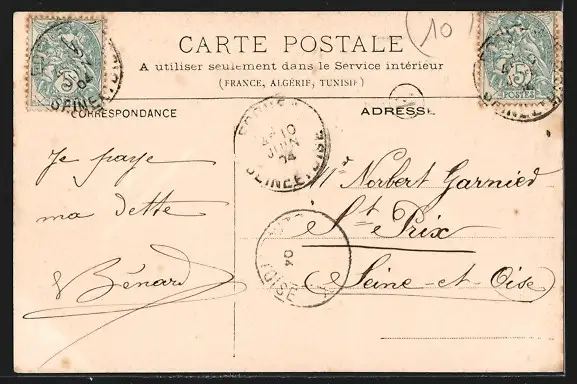 (10)
CARTE POSTALE
A utiliser seulement dans le Service intérieur
(FRANCE, ALGÉRIE, TUNISIE)
CORRESPONDANCE
ADRESSE
5
POSTES
10
JUIN
04
SEINE ET OISE
Je paye
ma dette
Bénard
Mr Norbert Garnied
St Prix
Seine-et-Oise
04
OISE